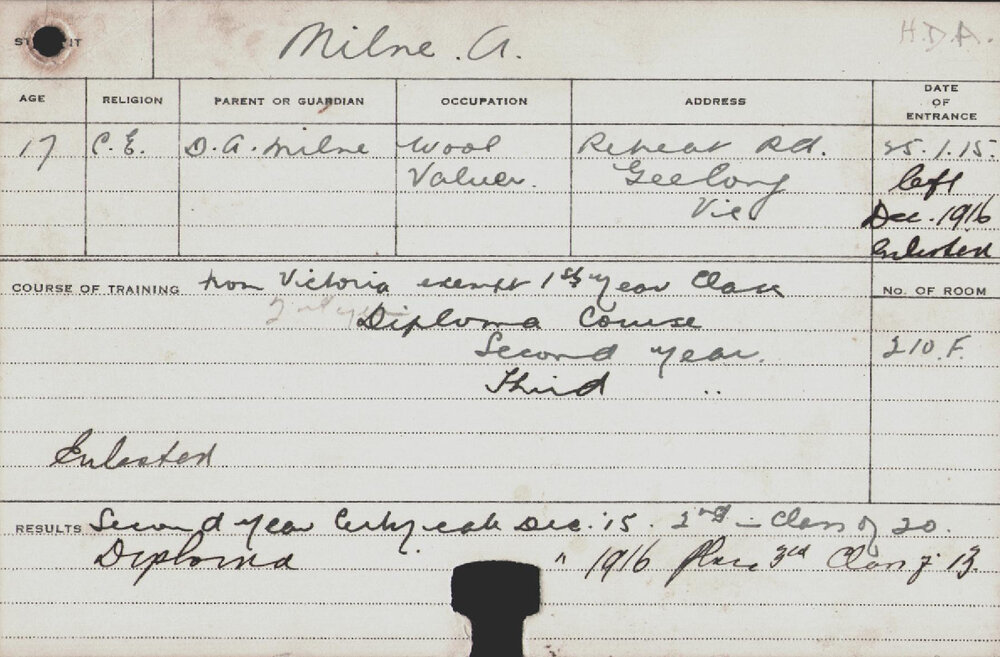 STUDENT Milne. A. H.D.A.
AGE RELIGION PARENT OR GUARDIAN OCCUPATION ADDRESS DATE OF ENTRANCE
17 C.E. D.A. Milne Wool Retreat Rd. 25.1.15.
Valuer. Geelong left
Vic Dec. 1916
Enlisted
COURSE OF TRAINING from Victoria exempt 1st year Class No. OF ROOM
2nd year Diploma Course
Second year. 210.F.
Third "
Enlisted
RESULTS Second year Certificate Dec. '15. 2nd in Class of 20.
Diploma " 1916 place 3rd Class of 13.